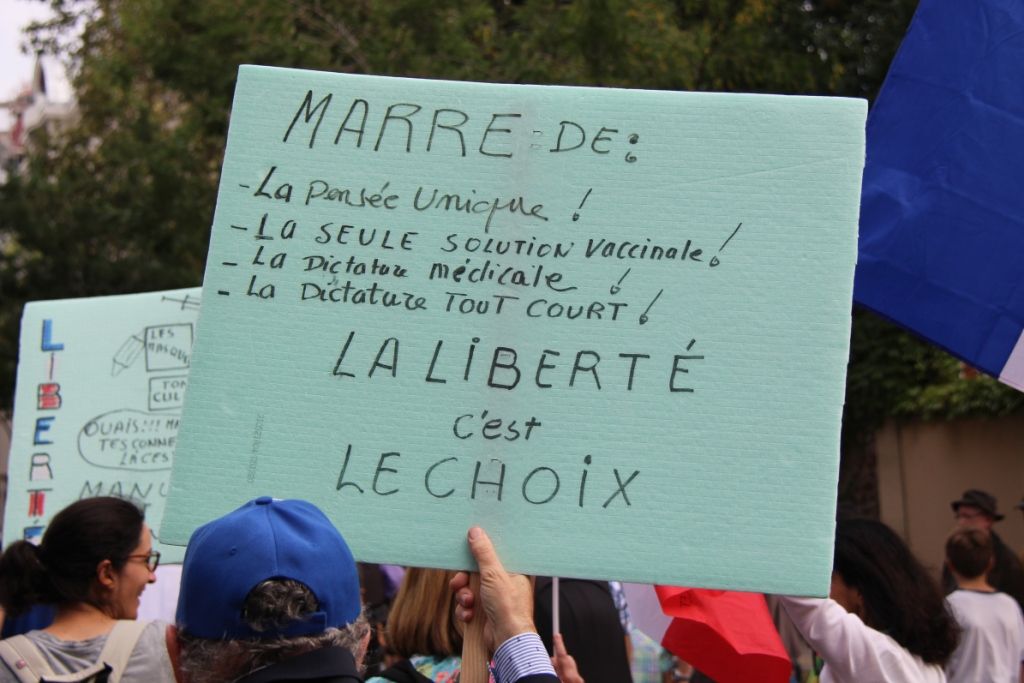 MARRE DE:
- La Pensée Unique !
- La SEULE SOLUTION Vaccinale !
- La Dictature médicale !
- La Dictature TOUT COURT !
LA LiBERTÉ
c'est
LE CHOiX
LIBERTÉ
LES
OUAIS!!!
TES